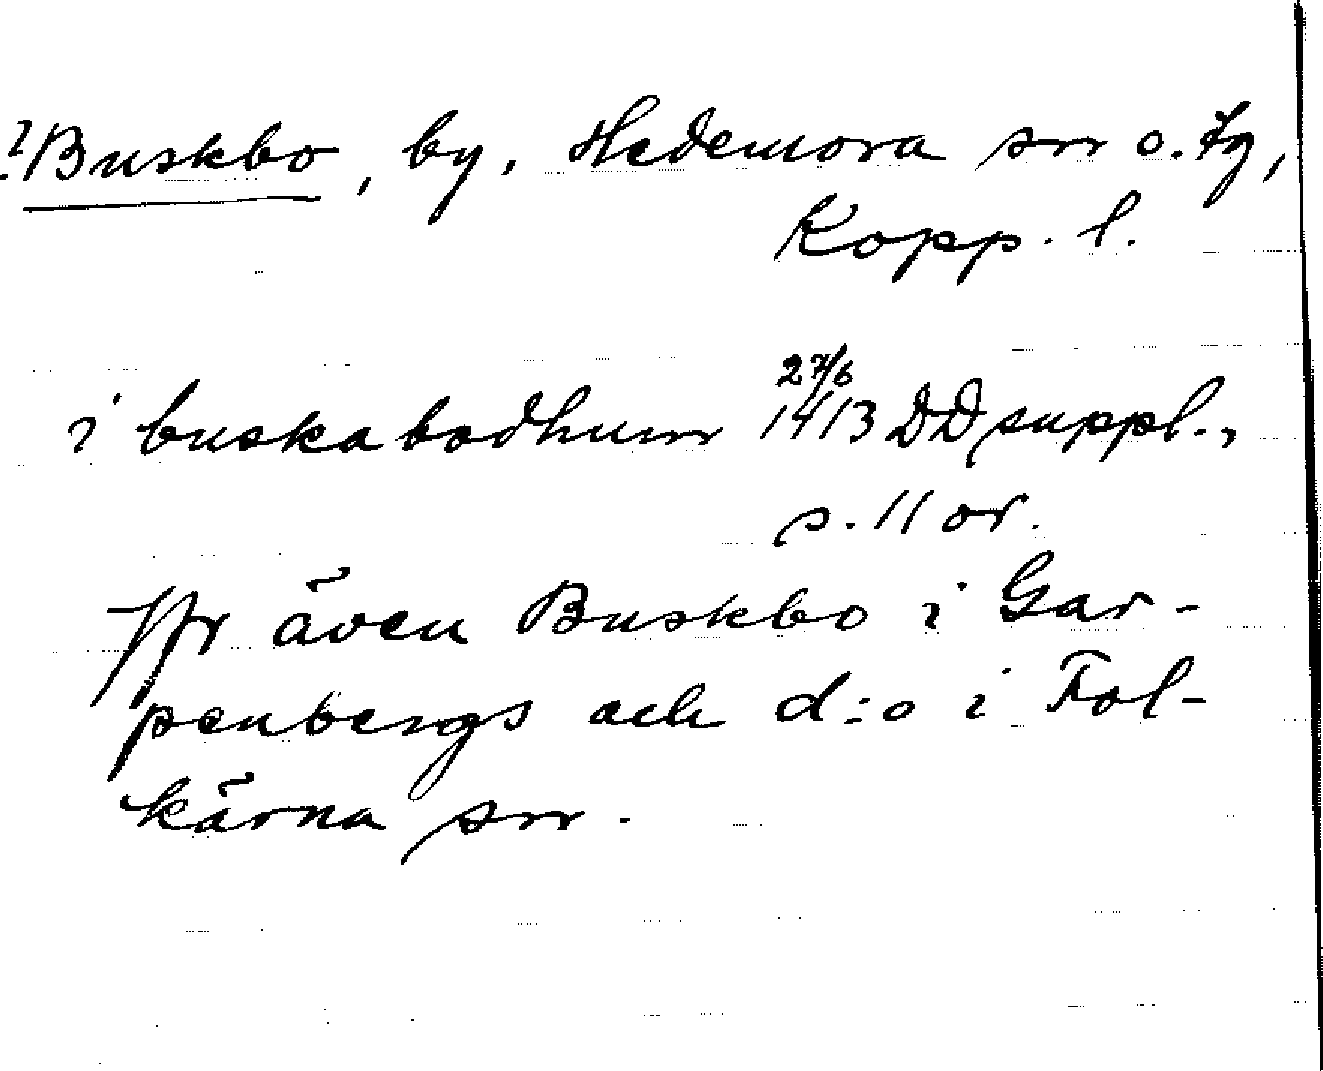 ?Buskbo, by, Hedemora sn o. tg,
Kopp. l.
i buskabodhum 27/6 1413 DD suppl.,
s. 11 or.
Jfr även Buskbo i Gar-
penbergs och d:o i Fol-
kärna snr.